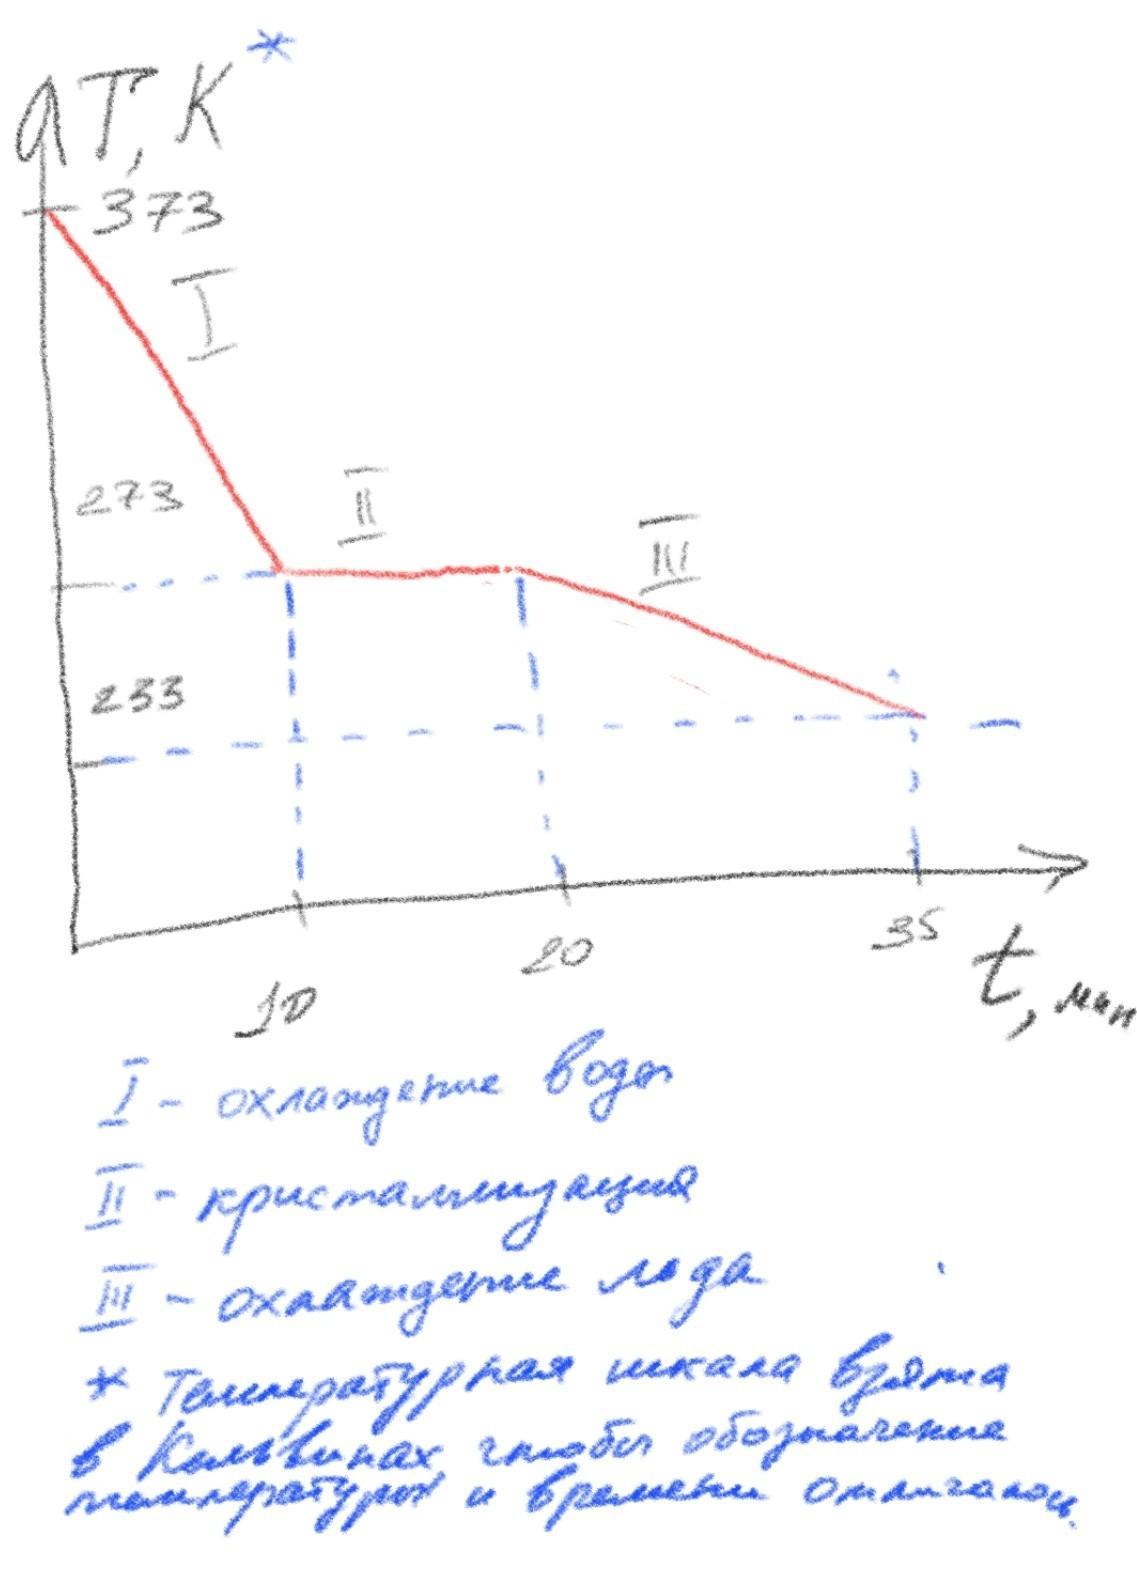 T, К *
373
I
273
II
III
233
10
20
35
t, мин
I - охлаждение воды
II - кристаллизация
III - охлаждение льда
* Температурная шкала взята
в Кельвинах чтобы обозначение
температуры и времени отличалось.